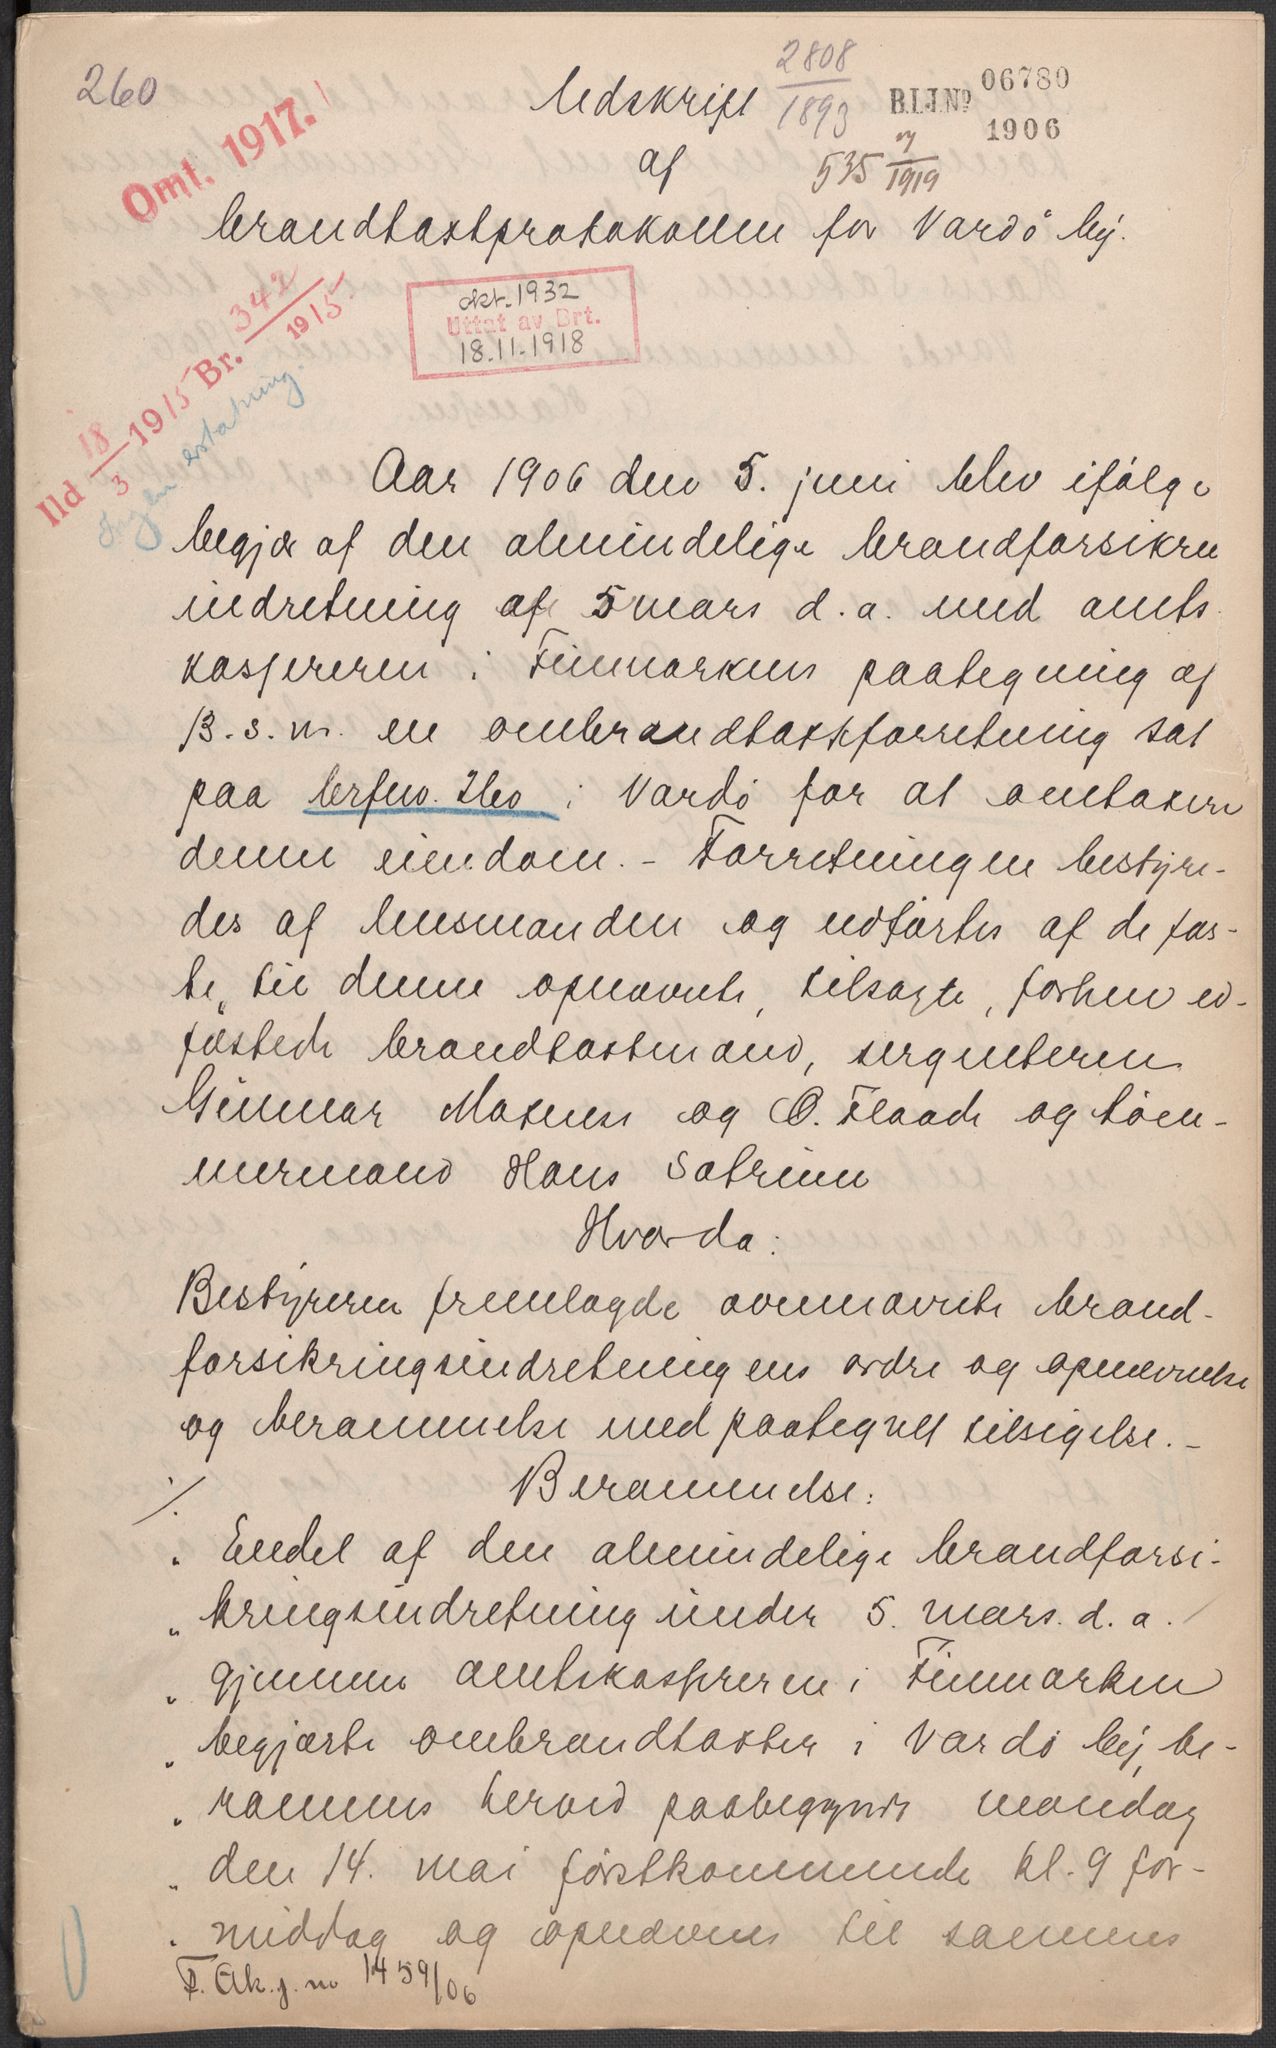 260
Udskrift
2808
1893
B.I.J.No 06780
1906
535 1919
Omt. 1917.
af
brandtaxtprotokollen for Vardö by.
okt. 1932
Uttat av Brt.
18.11.1918
Ild 18/3 1915 Br. 342/1915
Ingen erstatning.
Aar 1906 den 5. juni blev ifölge
begjær af den almindelige brandforsikrn
indretning af 5 mars d. a. med amts
kasjereren i Finmarkens paategning af
13. s. m. en ombrandtaxtforretning sat
paa i Vardö for at omtaxere
denne eiendom. - Forretningen besty̆re-
des af lensmanden og udförtes af de fas-
te, til denne opnævnte, tilsagte, forhen ed-
fæstede brandtaxtmænd, sergenterne
Gunnar og O. Flaade og töm-
mermand Hans Satrinn
Hvorda:
Bestyreren fremlagde ovennævnte brand-
forsikringsindretningens ordre og opnævnelse
og berammelse med paategnet tilsigelse. -
Berammelse:
·/.
" Endel af den almindelige brandforsi-
" kringsindretning under 5. mars. d. a.
" gjennem amtskasjereren i Finmarken
" begjærte ombrandtaxter i Vardö by, be-
" rammes herved paabegyndt mandag
" den 14. mai førstkommende kl. 9 for-
" middag og opnævnes til sammes
F. Ak. j. no 1459/06